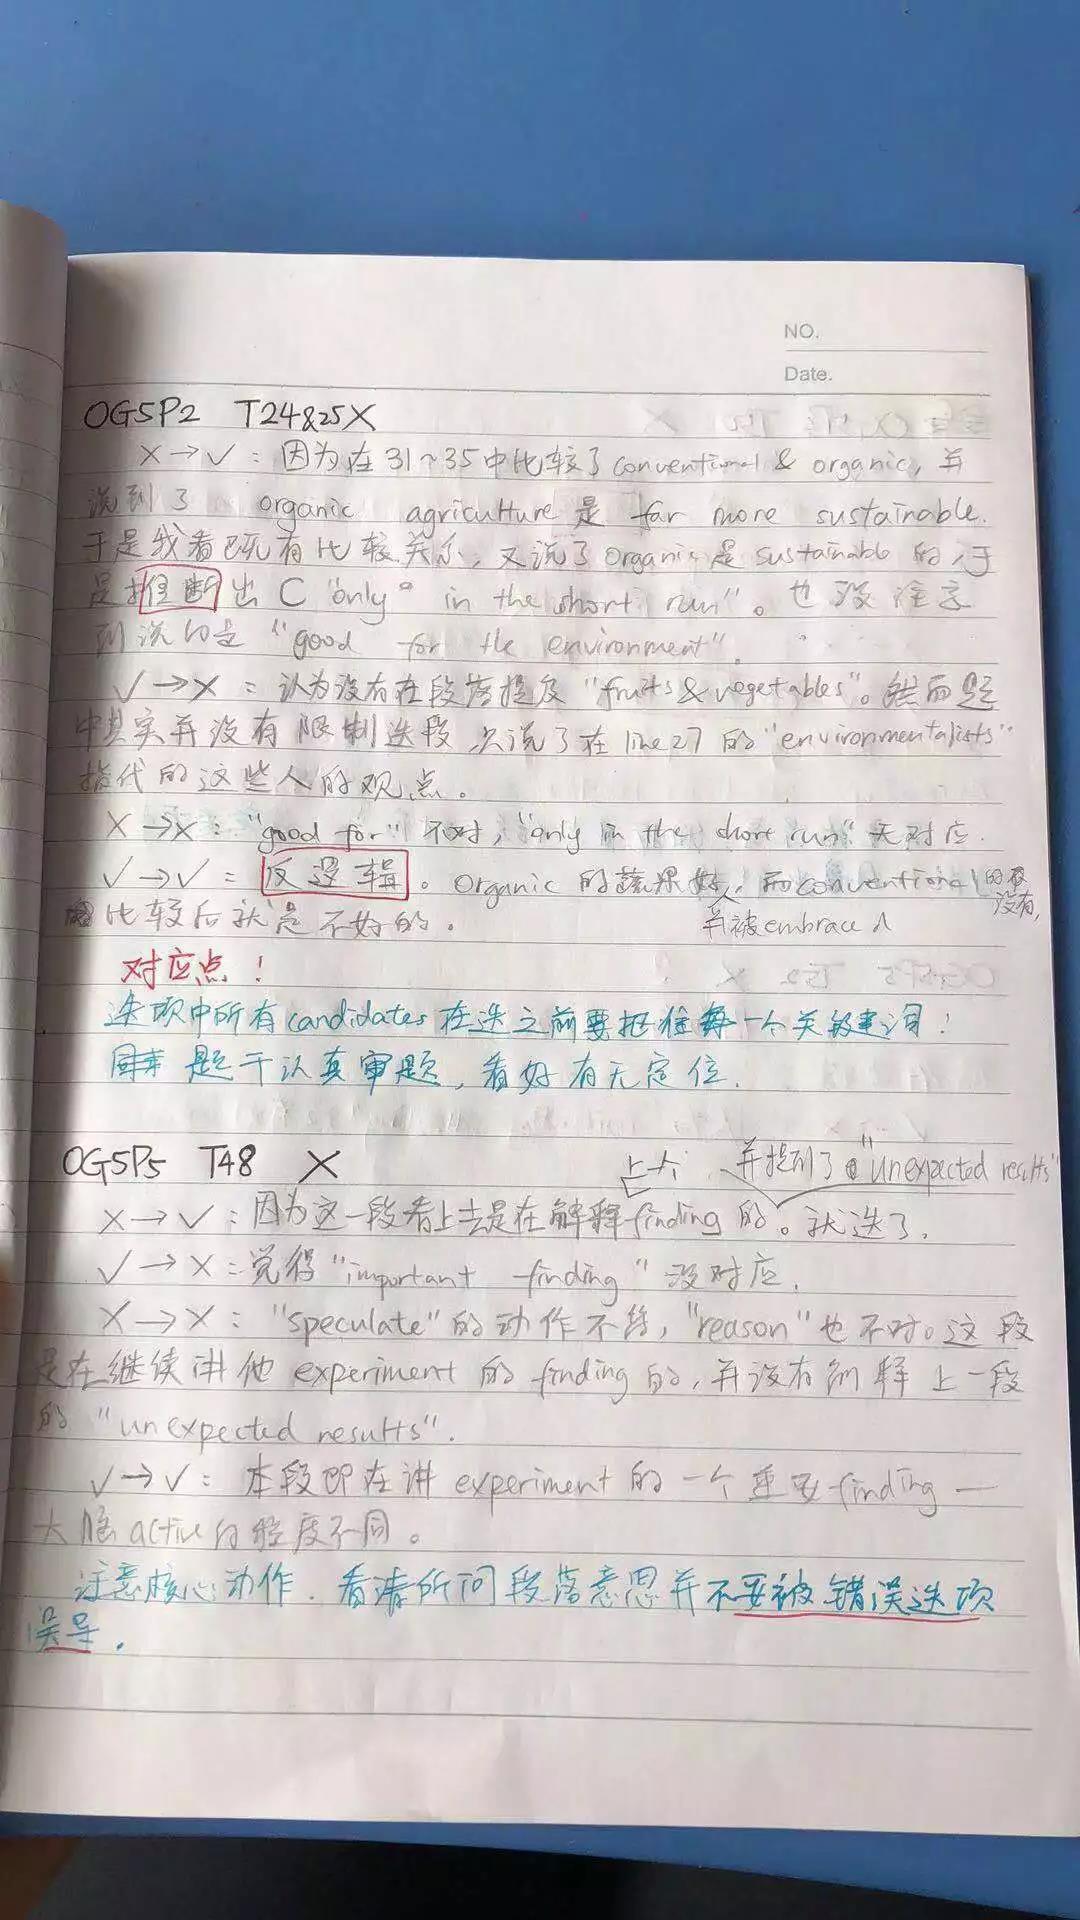 NO.
Date.
OG5P2 T24&25X
X→√：因为在31~35中比较了conventional & organic，并
说到了 organic agriculture 是 far more sustainable.
于是我看既有比较关系，又说了organic是sustainable的，于
是推断出C "only" in the short run"。也没注意
到说的是"good for the environment".
√→X：认为没有在段落提及"fruits & vegetables"。然而题
中其实并没有限制选段 只说了在line27的"environmentalists"
指代的这些人的观点。
X→X："good for"不对，"only in the short run"无对应.
√→√：反逻辑。Organic的蔬果好，而conventional的
没有，
并被embraced
比较后就是不好的。
对应点！
选项中所有candidates在选之前要抓住每一个关键词！
题干认真审题，看好有无定位.
OG5P5 T48 X
上个 并提到了"unexpected results"
X→√：因为这一段看上去是在解释finding的。就选了.
√→X：觉得"important finding"没对应.
X→X："speculate"的动作不符，"reason"也不对。这段
是在继续讲他experiment的finding的，并没有解释上一段
的"unexpected results".
√→√：本段即在讲experiment的一个重要finding—
大脑active的程度不同。
注意核心动作. 看清所问段落意思并不要被错误选项
误导.